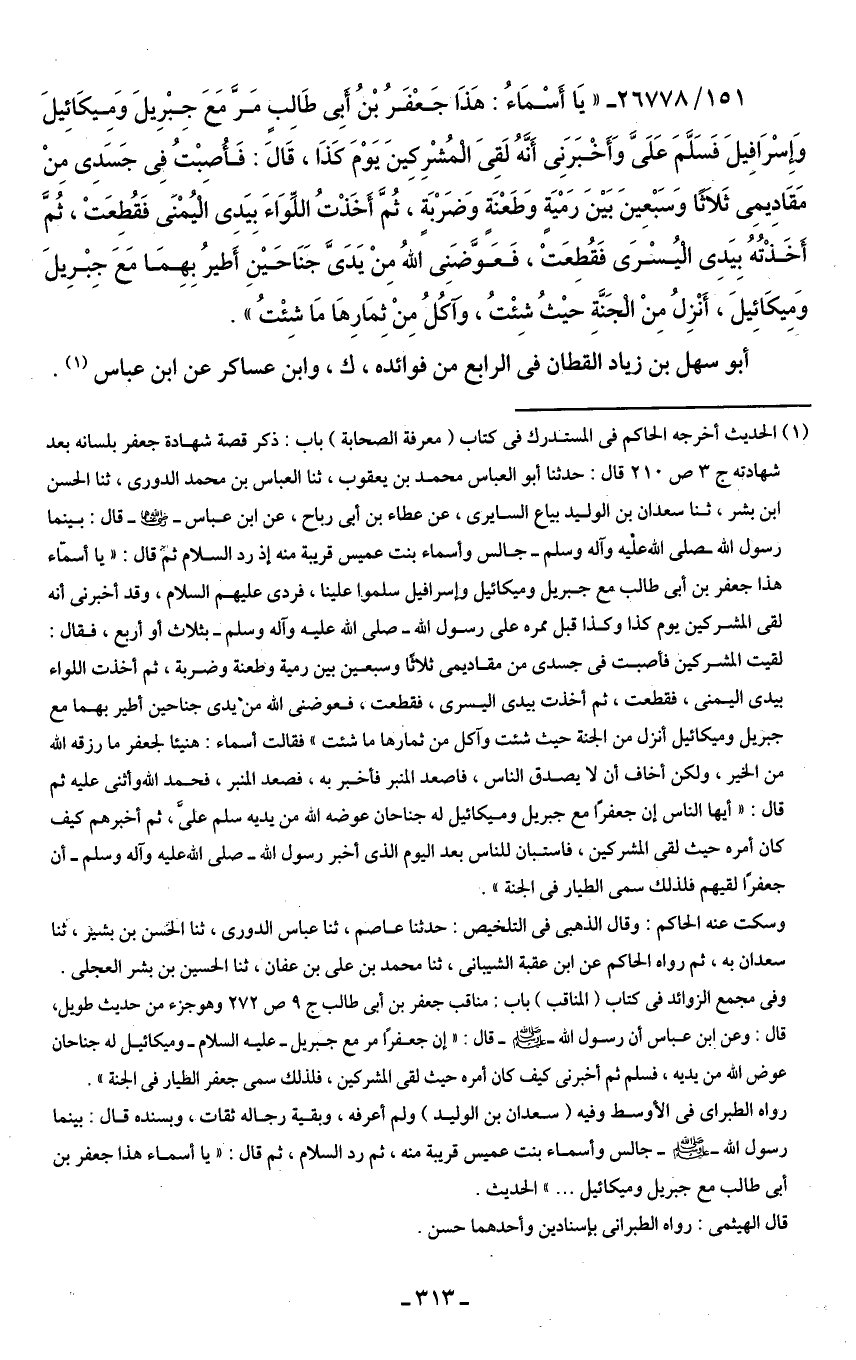 ٢٦٧٧٨/١٥١ـ « يَا أَسْمَاءُ : هَذَا جَعْفَرُ بْنُ أَبِى طَالِبٍ مَرَّ مَعَ جِبْرِيلَ وَمِيكَائِيلَ
وَإِسْرَافِيلَ فَسَلَّمَ عَلَىَّ وَأَخْبَرَنِى أَنَّهُ لَقِىَ الْمُشْرِكِينَ يَوْمَ كَذَا ، قَالَ : فَأُصِبْتُ فِى جَسَدِى مِنْ
مَقَادِيمِى ثَلاَثًا وَسَبْعِينَ بَيْنَ رَمْيَةٍ وَطَعْنَةٍ وَضَرْبَةٍ ، ثُمَّ أَخَذْتُ اللِّوَاءَ بِيَدِى الْيُمْنَى فَقُطِعَتْ ، ثُمَّ
أَخَذْتُهُ بِيَدِى الْيُسْرَى فَقُطِعَتْ ، فَعَوَّضَنِى اللهُ مِنْ يَدَىَّ جَنَاحَيْنِ أَطِيرُ بِهِمَا مَعَ جِبْرِيلَ
وَمِيكَائِيلَ ، أَنْزِلُ مِنْ الْجَنَّةِ حَيْثُ شِئْتُ ، وَآكُلُ مِنْ ثِمَارِهَا مَا شِئْتُ » .
أبو سهل بن زياد القطان فى الرابع من فوائده ، ك ، وابن عساكر عن ابن عباس (١) .
(١) الحديث أخرجه الحاكم فى المستدرك فى كتاب ( معرفة الصحابة ) باب : ذكر قصة شهادة جعفر بلسانه بعد
شهادته ج ٣ ص ٢١٠ قال : حدثنا أبو العباس محمد بن يعقوب ، ثنا العباس بن محمد الدورى ، ثنا الحسن
ابن بشر ، ثنا سعدان بن الوليد بياع السابرى ، عن عطاء بن أبى رباح ، عن ابن عباس ـ رضي الله عنهما ـ قال : بينما
رسول الله ـصلى اللهعليه وآله وسلم ـ جالس وأسماء بنت عميس قريبة منه إذ رد السلام ثم قال : « يا أسماء
هذا جعفر بن أبى طالب مع جبريل وميكائيل وإسرافيل سلموا علينا ، فردى عليهم السلام ، وقد أخبرنى أنه
لقى المشركين يوم كذا وكذا قبل ممره على رسول الله ـ صلى الله عليه وآله وسلم ـ بثلاث أو أربع ، فقال :
لقيت المشركين فأصبت فى جسدى من مقاديمى ثلاثًا وسبعين بين رمية وطعنة وضربة ، ثم أخذت اللواء
بيدى اليمنى ، فقطعت ، ثم أخذت بيدى اليسرى ، فقطعت ، فعوضنى الله من يدى جناحين أطير بهما مع
جبريل وميكائيل أنزل من الجنة حيث شئت وآكل من ثمارها ما شئت » فقالت أسماء : هنيئا لجعفر ما رزقه الله
من الخير ، ولكن أخاف أن لا يصدق الناس ، فاصعد المنبر فأخبر به ، فصعد المنبر ، فحمد اللهوأثنى عليه ثم
قال : « أيها الناس إن جعفرًا مع جبريل وميكائيل له جناحان عوضه الله من يديه سلم علىَّ ، ثم أخبرهم كيف
كان أمره حيث لقى المشركين ، فاستبان للناس بعد اليوم الذى أخبر رسول الله ـ صلى اللهعليه وآله وسلم ـ أن
جعفرًا لقيهم فلذلك سمى الطيار فى الجنة » .
وسكت عنه الحاكم : وقال الذهبى فى التلخيص : حدثنا عاصم ، ثنا عباس الدورى ، ثنا الحسن بن بشير ، ثنا
سعدان به ، ثم رواه الحاكم عن ابن عقبة الشيبانى ، ثنا محمد بن على بن عفان ، ثنا الحسين بن بشر العجلى .
وفى مجمع الزوائد فى كتاب ( المناقب ) باب : مناقب جعفر بن أبى طالب ج ٩ ص ٢٧٢ وهوجزء من حديث طويل،
قال : وعن ابن عباس أن رسول الله ـ ﷺ ـ قال : « إن جعفرًا مر مع جبريل ـ عليه السلام ـ وميكائيل له جناحان
عوض الله من يديه ، فسلم ثم أخبرنى كيف كان أمره حيث لقى المشركين ، فلذلك سمى جعفر الطيار فى الجنة » .
رواه الطبراى فى الأوسط وفيه ( سعدان بن الوليد ) ولم أعرفه ، وبقية رجاله ثقات ، وبسنده قال : بينما
رسول الله ـ ﷺ ـ جالس وأسماء بنت عميس قريبة منه ، ثم رد السلام ، ثم قال : « يا أسماء هذا جعفر بن
أبى طالب مع جبريل وميكائيل ... » الحديث .
قال الهيثمى : رواه الطبرانى بإسنادين وأحدهما حسن .
ـ ٣١٣ ـ